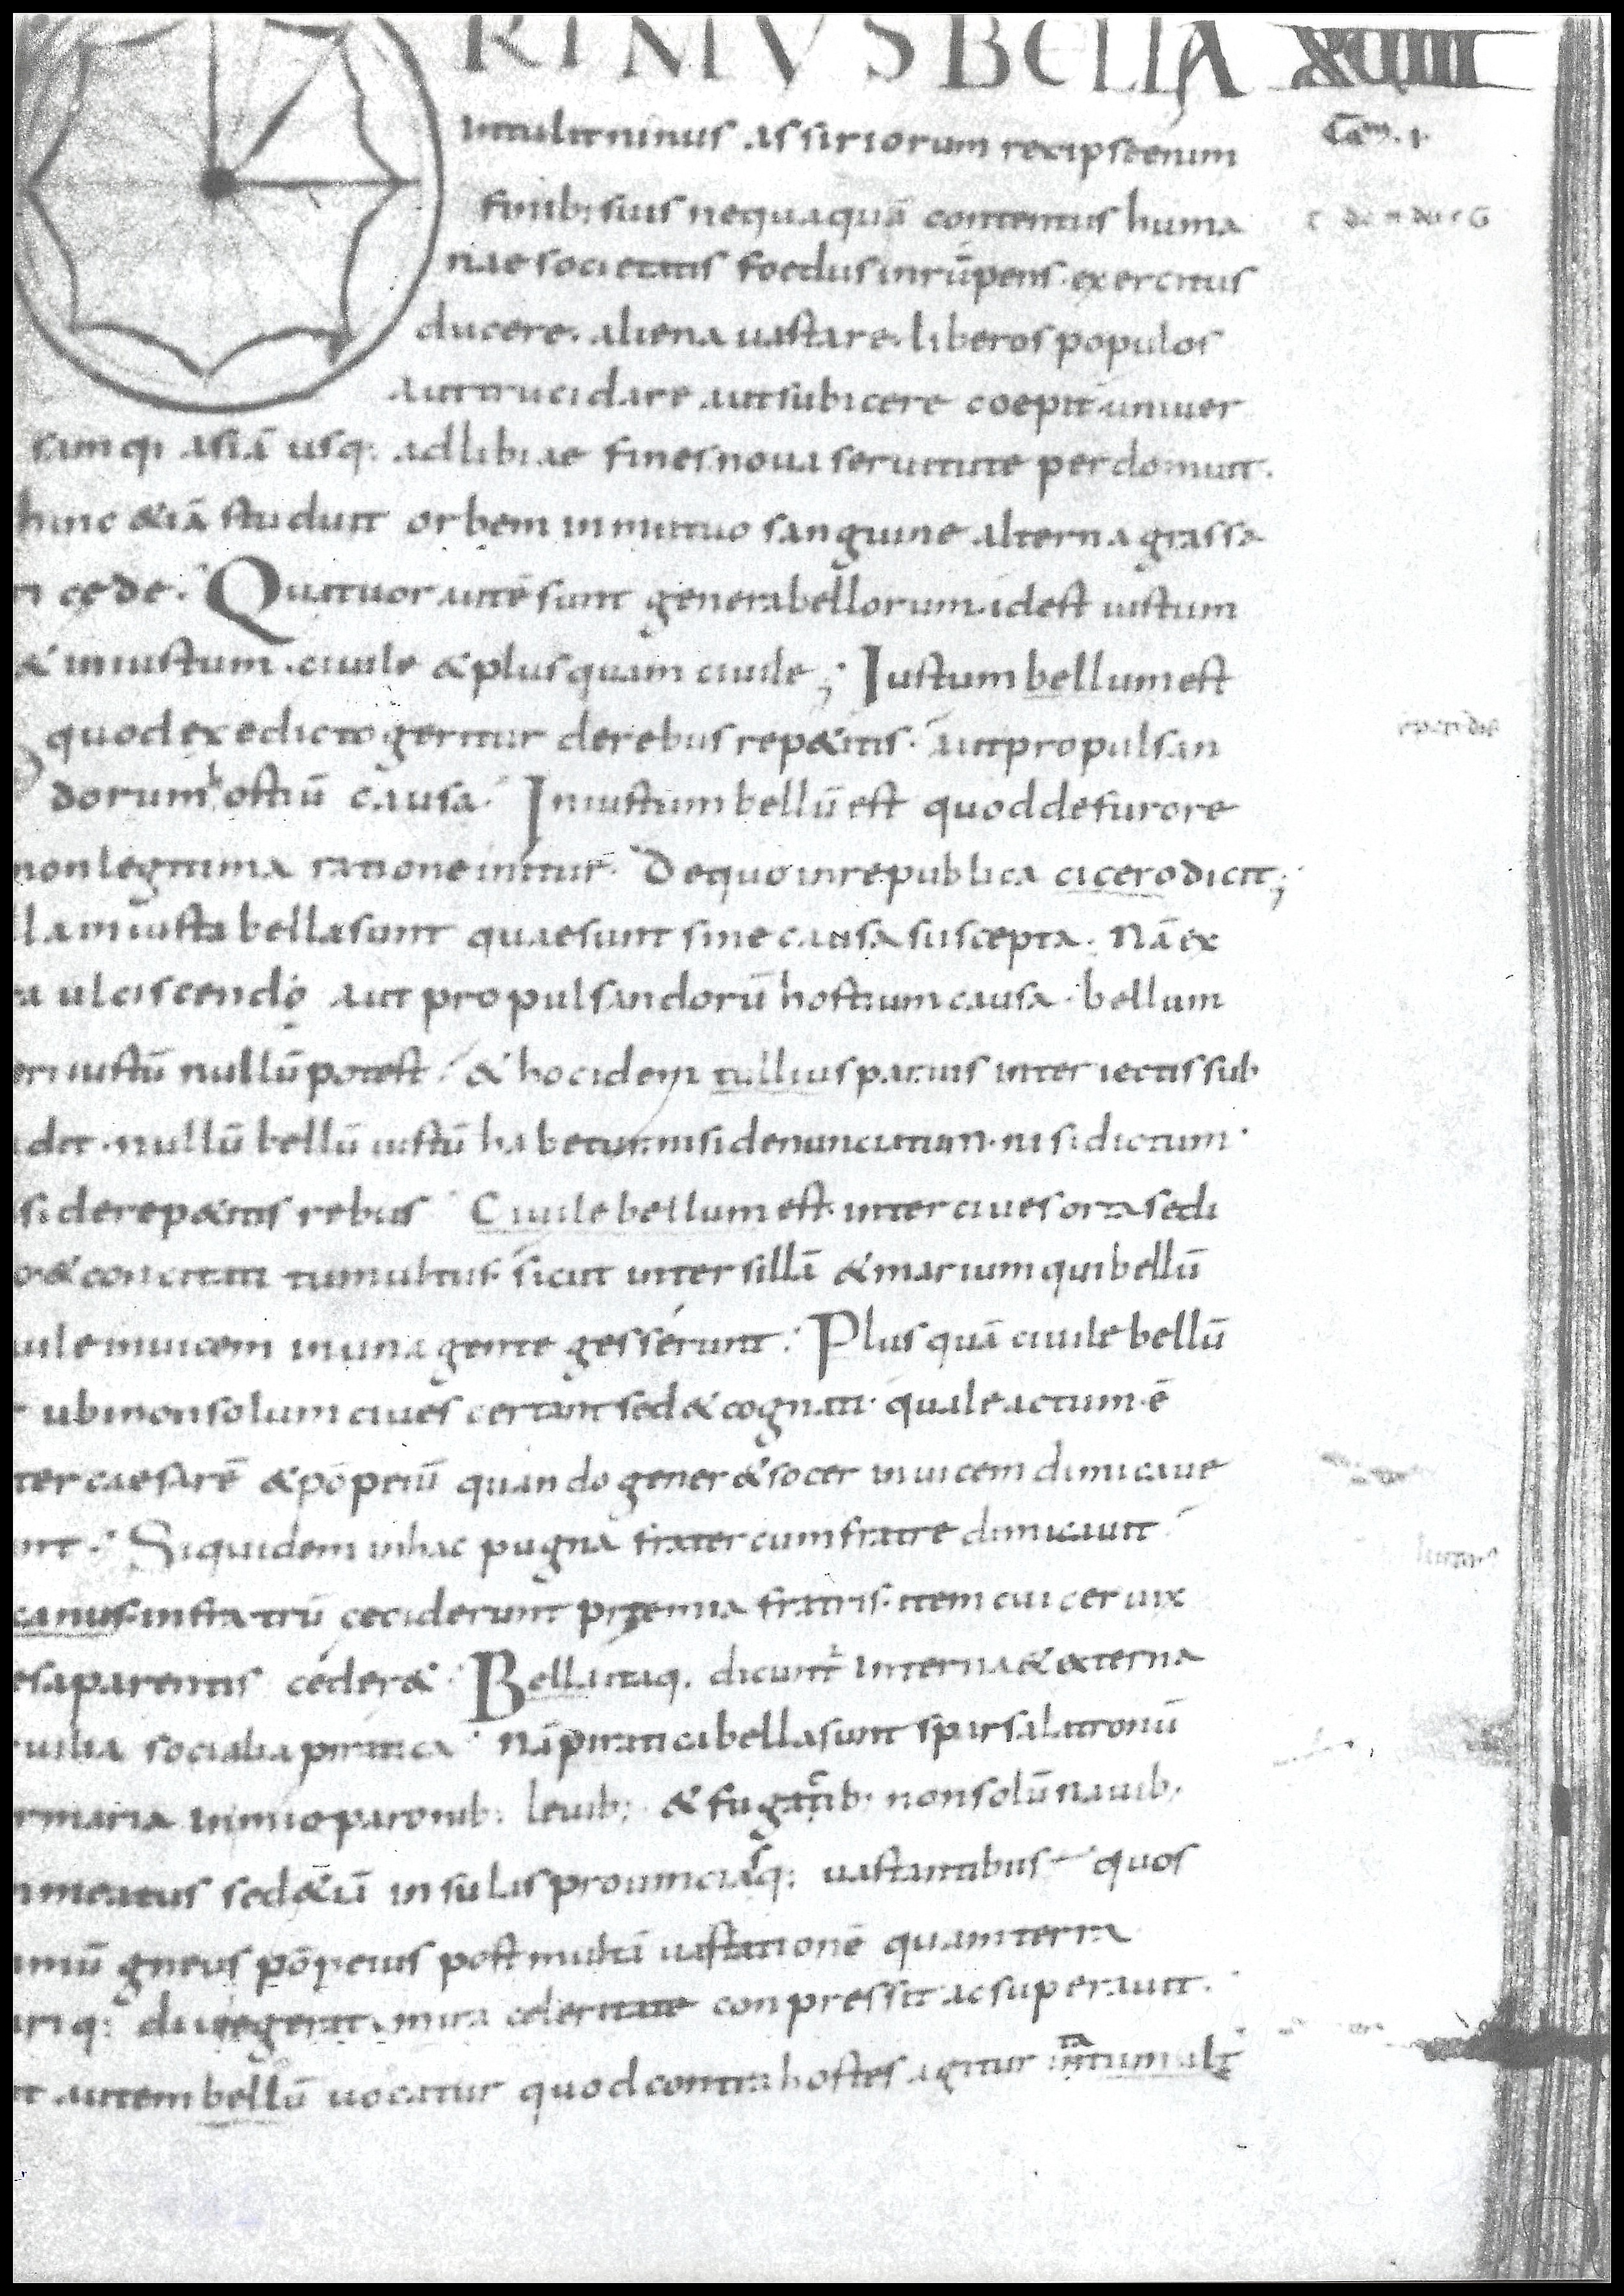 RIMVS BELLA XVIII
intulit ninus assiriorum rex ipse enim
finib; suis nequaquā contentus huma
nae societatis foedus inrūpens. exercitus
ducere. aliena uastare. liberos populos
aut trucidare aut subicere coepit. uniuer
samq; asiā usq; ad libiae fines noua seruitute perdomuit.
hinc &iā studuit orbem in mutuo sanguine alterna grassa
ri cęde. Quattuor autē sunt genera bellorum. id est iustum
& iniustum. ciuile & plus quam ciuile; Iustum bellum est
quod ex edicto geritur de rebus rep&itis. aut propulsan
dorum hostiū causa. Iniustum bellū est quod de furore
non legitima ratione initur. De quo in republica cicero dicit;
lla iniusta bella sunt quae sunt sine causa suscepta. Nā ex
ra ulciscendo aut propulsandorū hostium causa. bellum
eri iustū nullū potest. & hoc idem tullius paruis interiectis sub
idit. nullū bellū iustū habetur. nisi denunciatum. nisi dictum.
si de rep&itis rebus. Ciuile bellum est inter ciues orta sedi
o. & concitati tumultus. sicut inter sillā & marium qui bellū
uile inuicem in una gente gesserunt. Plus quā ciuile bellū
ubi non solum ciues certant sed & cognati. quale actum ē
ter caesarē & pōpeiū quando gener & socer inuicem dimicaue
nt. Siquidem in hac pugna frater cum fratre dimicauit
canus. infatrū ceciderunt praemia fratris. item cui ceruix
esa parentis céder&. Bella itaq. dicunt' interna & externa
uilia socialia piratica. Nā piratica bella sunt sparsa latronū
r maria in mioparonib; leuib; & fugacib; non solū nauib;
mmeatus sed &iā insulis prouinciasq; uastantibus quos
imū gneus pōpeius post multā uastationē quam terra
ariq; diu egerat. mira celeritate conpressit ac superauit.
t autem bellū uocatur quod contra hostes agitur ita tumult'
Cam. I.